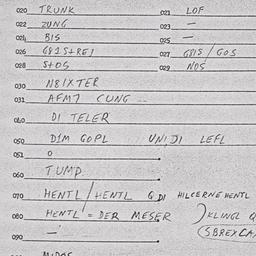 020 TRUNK 021 LOF
022 ZUNG 023 —
024 BIS 025 —
026 G81S+REI 027 G81S / GOS
028 S+OS 029 NOS
030 N8IXTER
031 AFM7 CUNG
040 DI TELER
050 DIM GOPL UNIJI LEFL
051 0
060 TUMP
070 HENTL / HENTL Q DI HILCERNE HENTL
080 HENTL = DER MESER ) KLINGL Q
090 — (SBREXCA